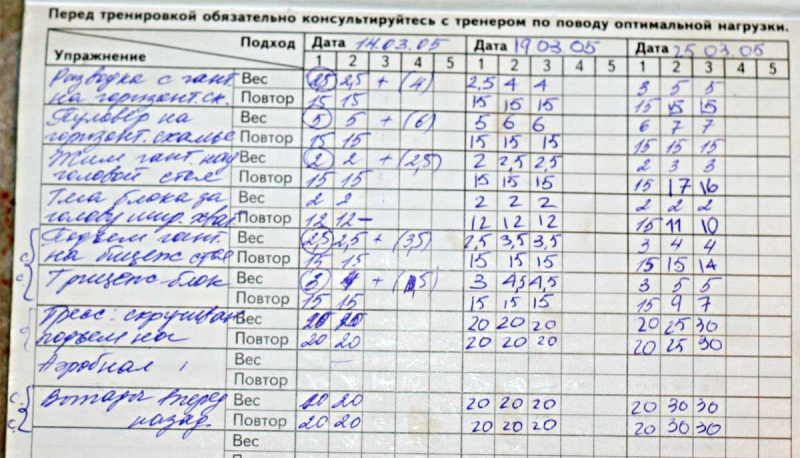 Перед тренировкой обязательно консультируйтесь с тренером по поводу оптимальной нагрузки.
Подход Дата 14.03.05 Дата 19.03.05 Дата 25 03.05
Упражнение 1 2 3 4 5 1 2 3 4 5 1 2 3 4 5
Разводка с гант. Вес 2,5 2,5 + (4) 2,5 4 4 3 5 5
на горизонт. ск. Повтор 15 15 15 15 15 15 15 15
Пуловер на Вес 5 5 + (6) 5 6 6 6 7 7
горизонт. скамье Повтор 15 15 15 15 15 15 15 15
Жим гант. над Вес 2 2 + (2,5) 2 2,5 2,5 2 3 3
головой стоя Повтор 15 15 15 15 15 15 17 16
Тяга блока за Вес 2 2 2 2 2 2 2 2
голову шир. хват Повтор 12 12 – 12 12 12 15 11 10
с Подъем гант. Вес 2,5 2,5 + (3,5) 2,5 3,5 3,5 3 4 4
на бицепс стоя Повтор 15 15 15 15 15 15 15 14
с Трицепс блок Вес 3 4 + ( 5) 3 4,5 4,5 3 5 5
Повтор 15 15 15 15 15 15 9 7
Пресс: скручиван Вес 20 20 20 20 20 20 25 30
подъем ног Повтор 20 20 20 20 20 20 25 30
Аэробная Вес –
Повтор
с. Выпады вперед Вес 20 20 20 20 20 20 30 30
с. назад. Повтор 20 20 20 20 20 20 30 30
Вес